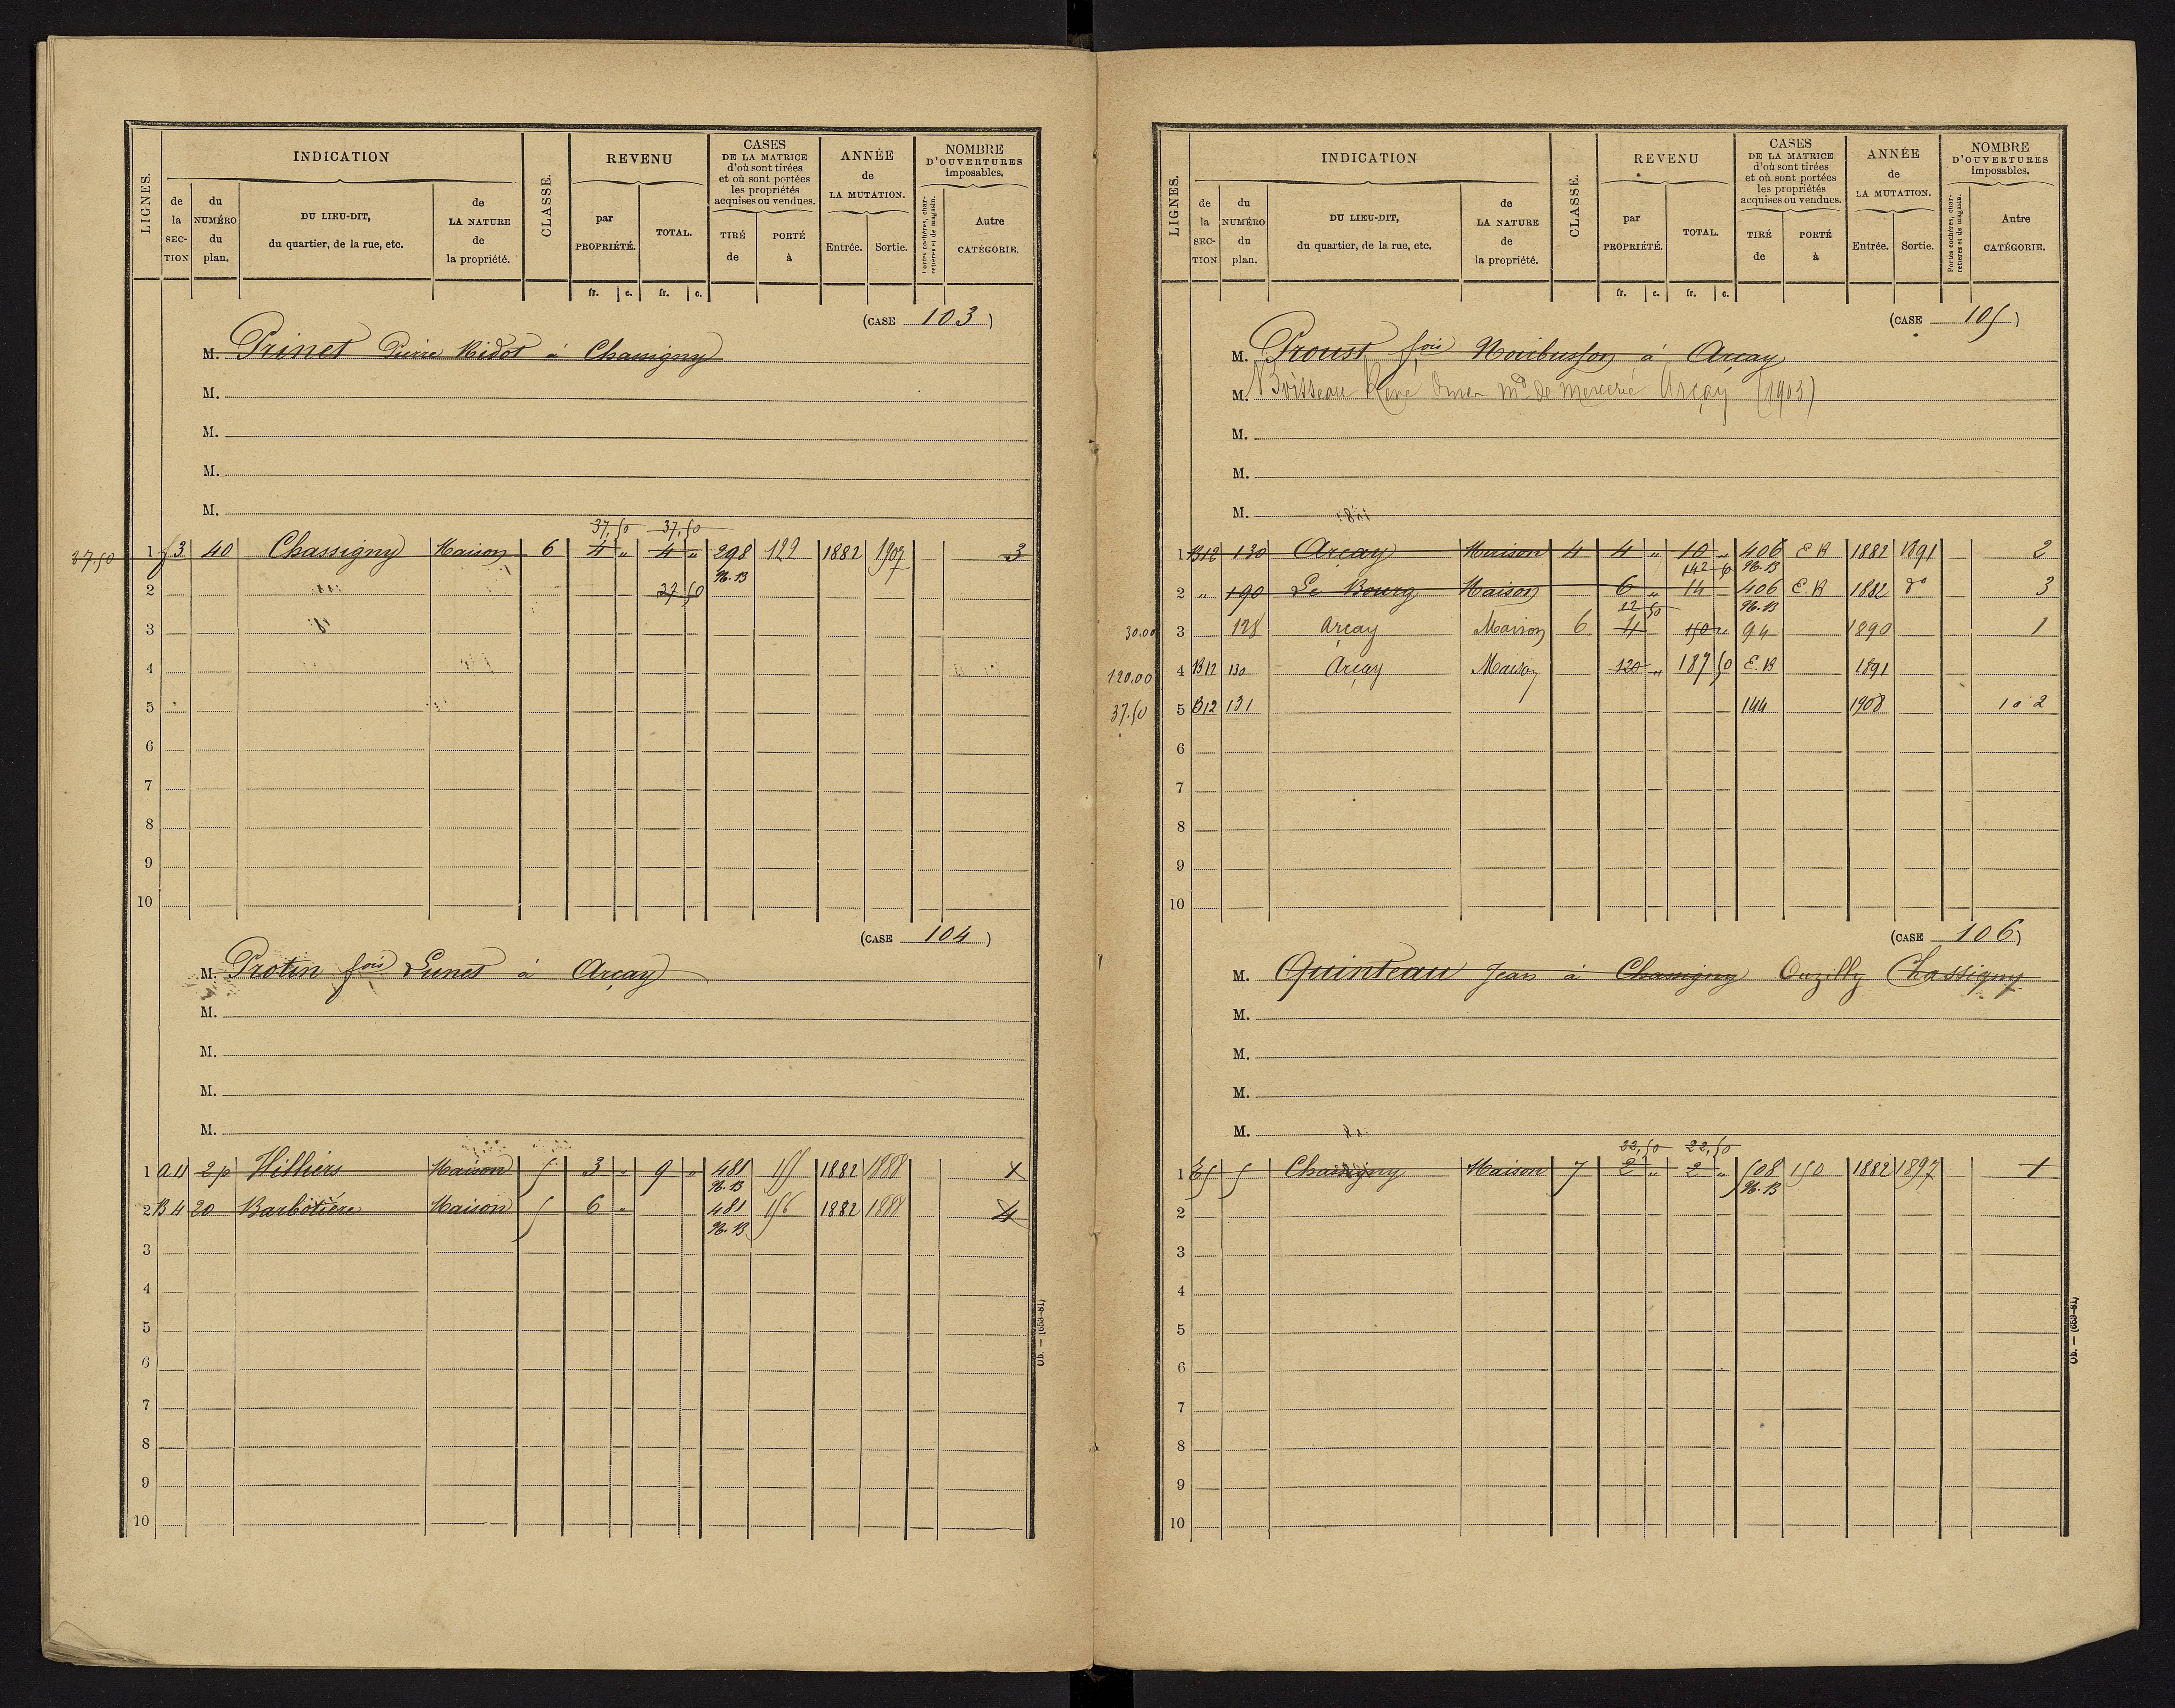 LIGNES.
INDICATION
CLASSE.
REVENU
CASES
DE LA MATRICE
d'où sont tirées
et où sont portées
les propriétés
acquises ou vendues.
ANNÉE
de
LA MUTATION.
NOMBRE
D'OUVERTURES
imposables.
de la SECTION
du NUMÉRO du plan.
DU LIEU-DIT,
du quartier, de la rue, etc.
de LA NATURE de la propriété.
par PROPRIÉTÉ.
TOTAL.
TIRÉ de
PORTÉ à
Entrée.
Sortie.
Portes cochères, charretières et de magasin.
Autre CATÉGORIE.
fr. c. fr. c.
(CASE 103)
M. Prinet Pierre Ridot à Chassigny
M.
M.
M.
M.
37,50 37,50
37.50 1 3 40 Chassigny Maison 6 4 " 4 " 298 122 1882 1907 3
2 37 50
3
4
5
6
7
8
9
10
(CASE 104)
M. Protin fois Lunet à Arçay
M.
M.
M.
M.
1 A 11 2p Hilliers Maison 5 3 " 9 " 481 155 1882 1888
2 B 4 20 Barbotière Maison 5 6 " 481 156 1882 1888 4
3
4
5
6
7
8
9
10
Ob. — (653-81)
LIGNES.
INDICATION
CLASSE.
REVENU
CASES
DE LA MATRICE
d'où sont tirées
et où sont portées
les propriétés
acquises ou vendues.
ANNÉE
de
LA MUTATION.
NOMBRE
D'OUVERTURES
imposables.
de la SECTION
du NUMÉRO du plan.
DU LIEU-DIT,
du quartier, de la rue, etc.
de LA NATURE de la propriété.
par PROPRIÉTÉ.
TOTAL.
TIRÉ de
PORTÉ à
Entrée.
Sortie.
Portes cochères, charretières et de magasin.
Autre CATÉGORIE.
fr. c. fr. c.
(CASE 105)
M. Proust fois à Arçay
M. Boisseau René Omer md de mercerie Arçay (1903)
M.
M.
M.
1 B12 130 Arçay Maison 4 4 " 10 " 406 E R 1882 1891 2
142 50
2 " 190 Le Bourg Maison 6 " 14 406 E. R 1882 do 3
22 50
30.00 3 128 Arçay Maison 6 4 150 " 94 1890 1
120.00 4 B12 130 Arçay Maison 120 " 187 50 E. R 1891
37.50 5 B12 131 144 1908 10 2
6
7
8
9
10
(CASE 106)
M. Quinteau Jean à Chassigny Ouzilly Chassigny
M.
M.
M.
M.
22,50 22,50
1 E5 5 Chassigny Maison 7 2 " 2 " 508 150 1882 1897 1
2
3
4
5
6
7
8
9
10
Ob. — (653-81)